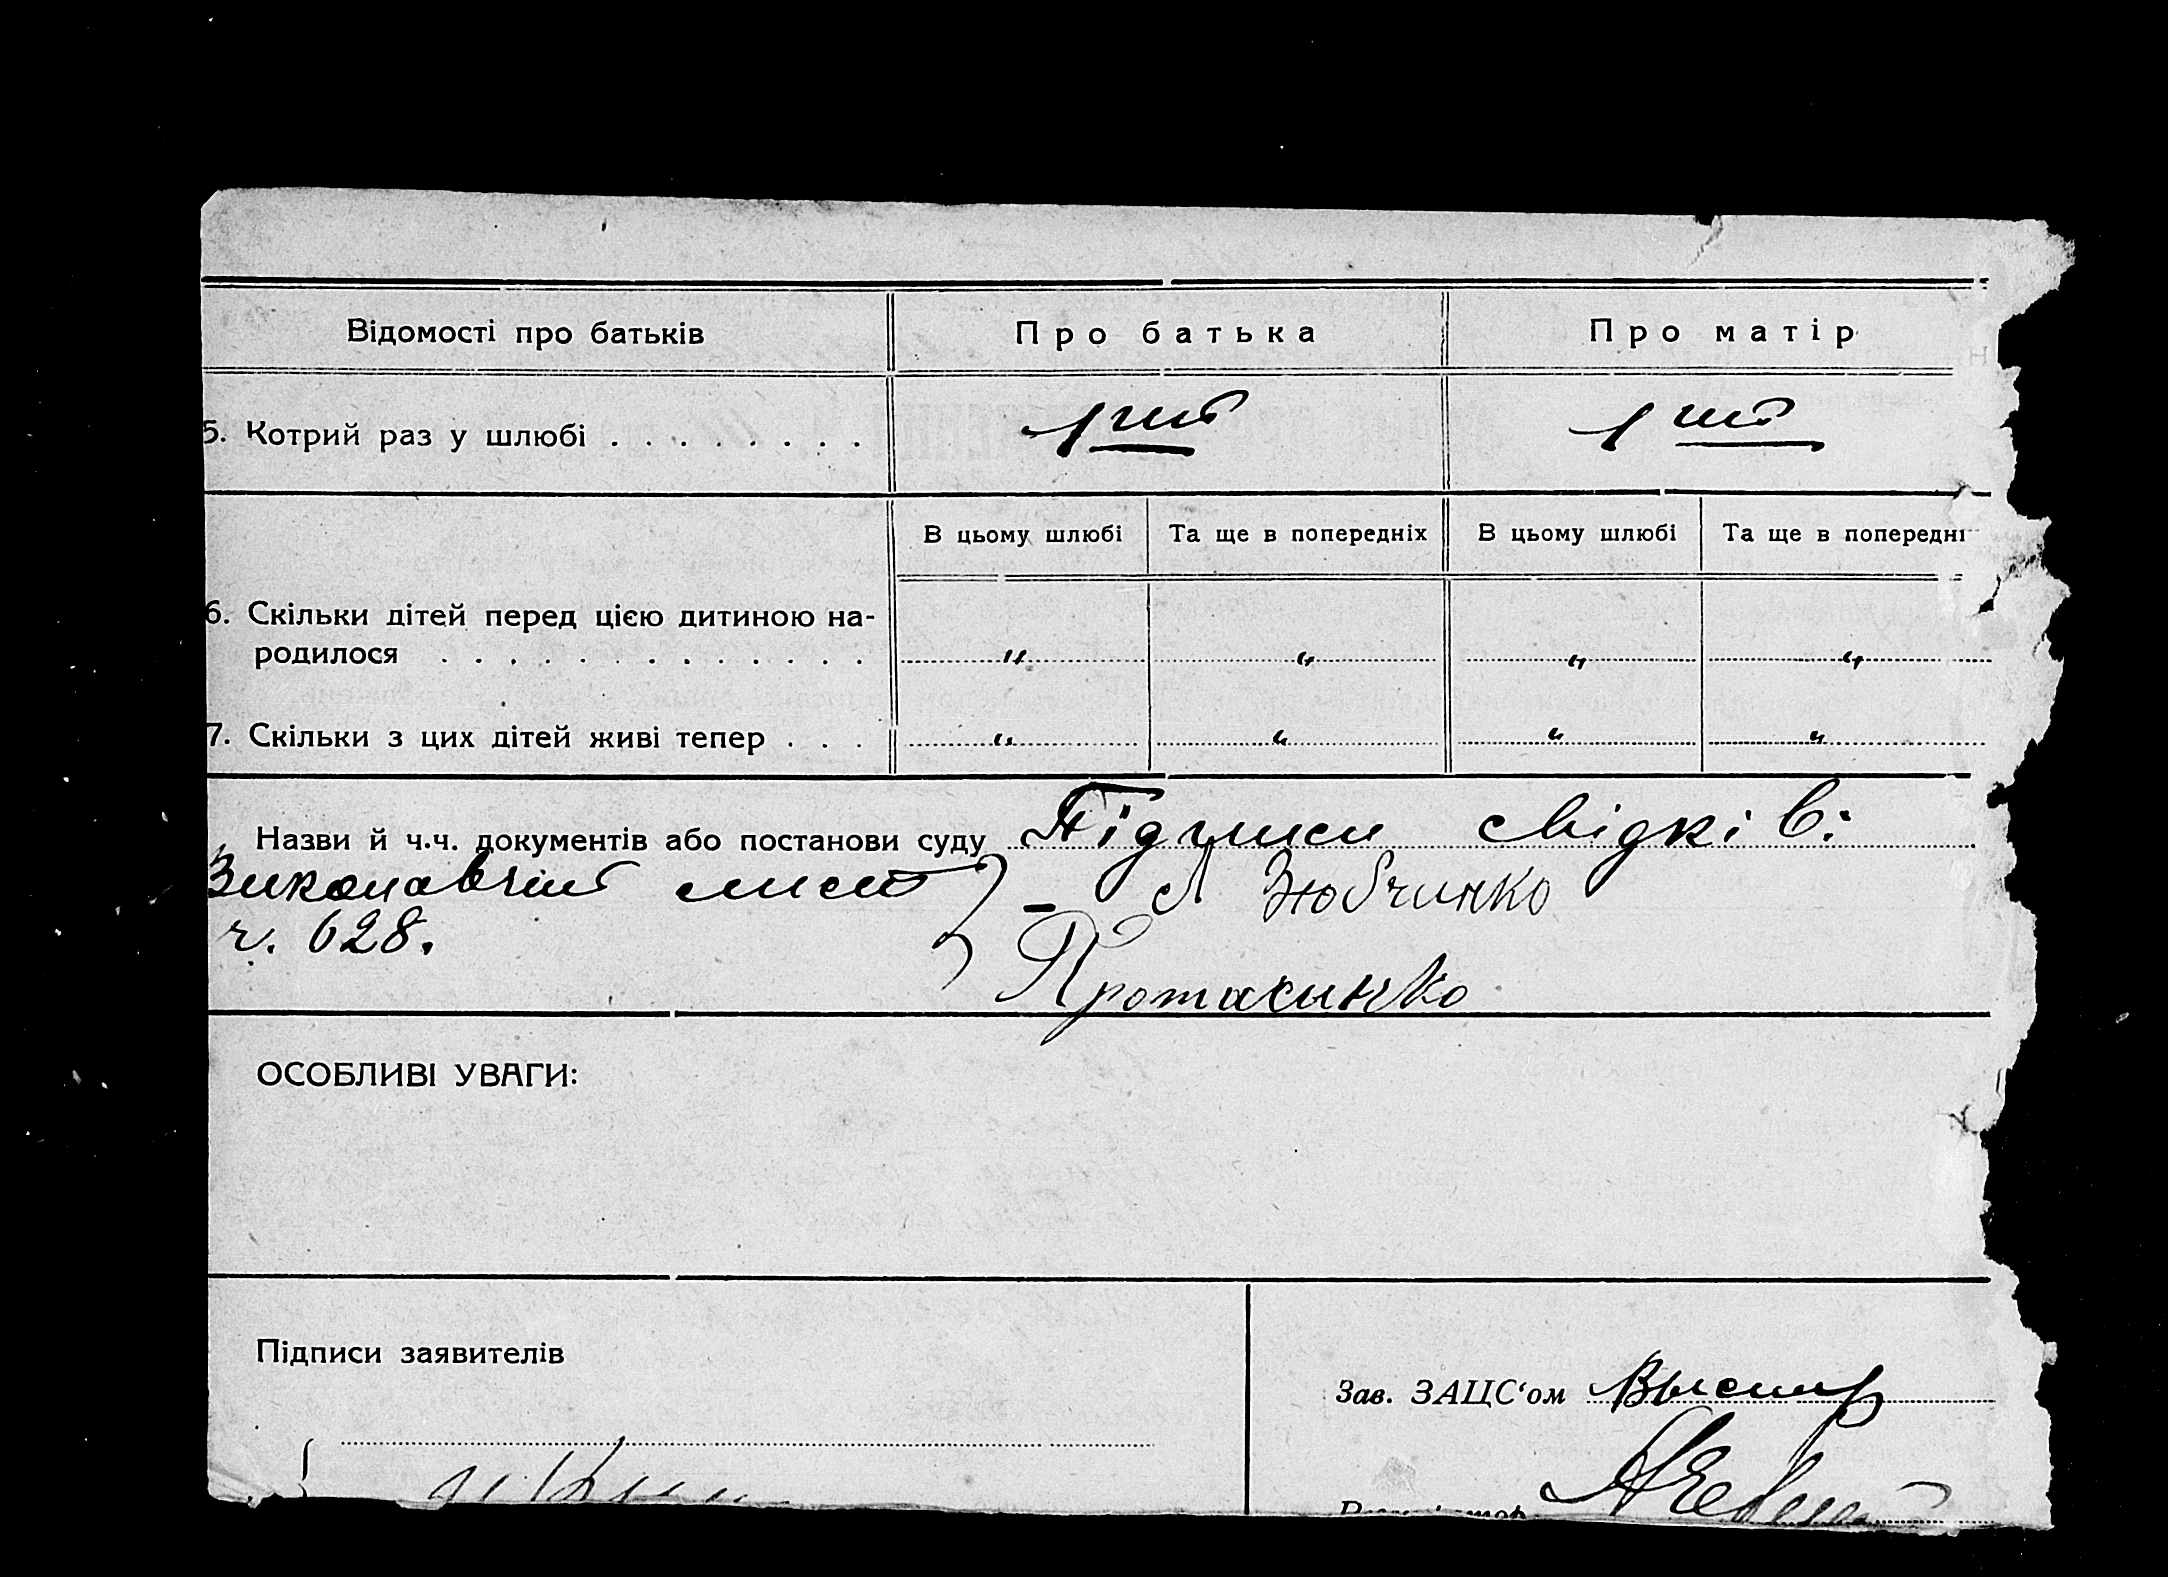 Відомості про батьків Про батька Про матір
5. Котрий раз у шлюбі . . . . . . . . 1ший 1 ший
В цьому шлюбі Та ще в попередніх В цьому шлюбі Та ще в попередні
6. Скільки дітей перед цією дитиною на-
родилося . . . . . . . . . . . . . " " " "
7. Скільки з цих дітей живі тепер . . . " " " "
Назви й ч.ч. документів або постанови суду Підписи свідків:
Виконавчий лист - А Зюбченко
ч. 628.
Протасенко
ОСОБЛИВІ УВАГИ:
Підписи заявителів
Зав. ЗАЦС‘ом